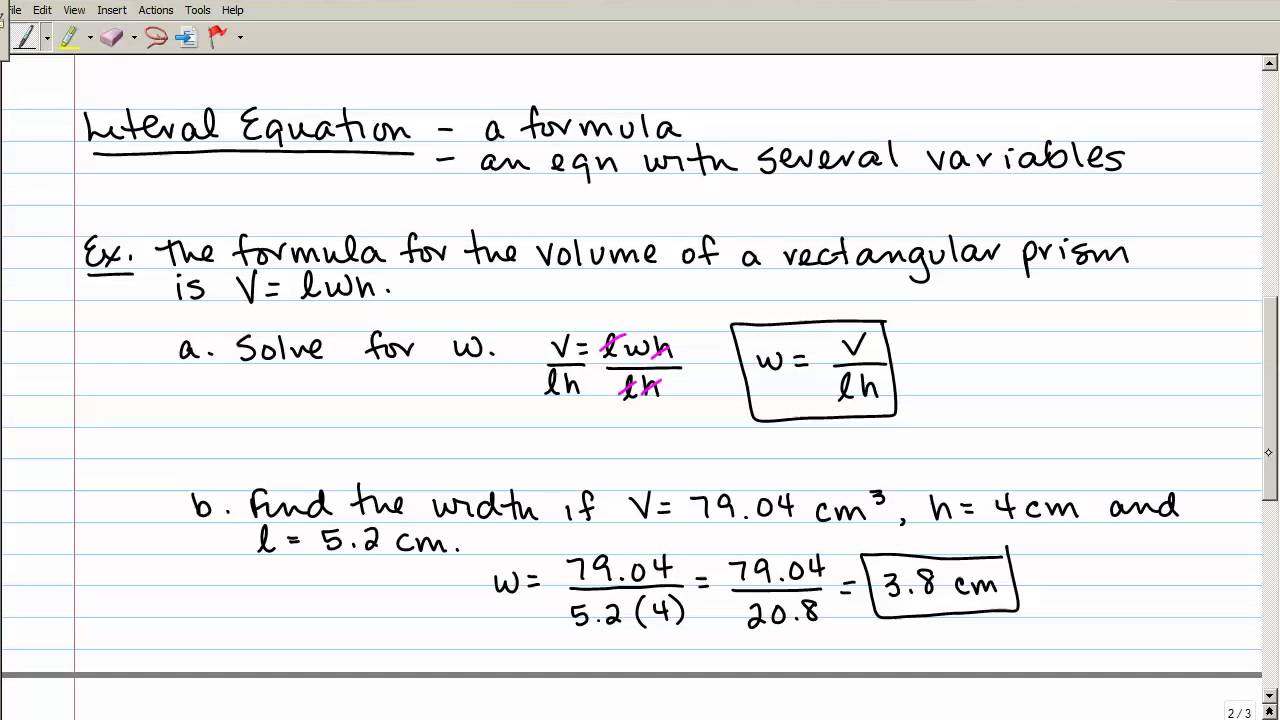 ile Edit View Insert Actions Tools Help
Literal Equation - a formula
- an eqn with several variables
Ex. The formula for the volume of a rectangular prism
is V = lwh.
a. Solve for w. V/lh = lwh/lh w = V/lh
b. Find the width if V = 79.04 cm³, h = 4 cm and
l = 5.2 cm.
w = 79.04/5.2(4) = 79.04/20.8 = 3.8 cm
2/3